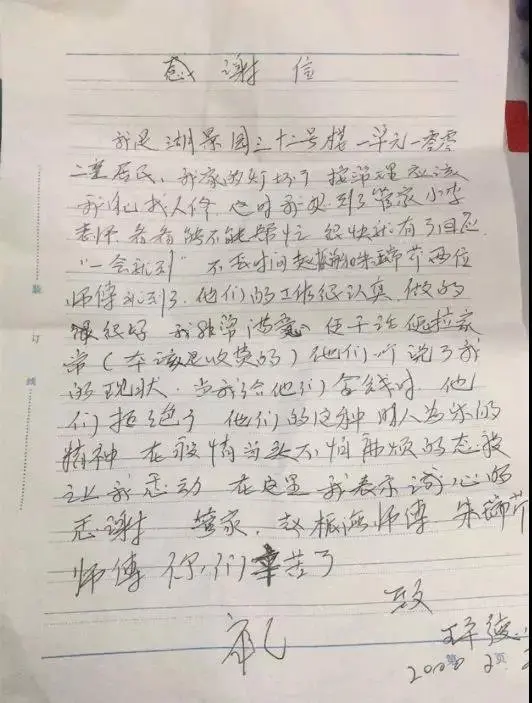 感谢信
我是湖景园三十二号楼一单元一零零
二室居民、我家的灯坏了按常理应该
我自己找人修，这时我想到了管家小李
看看能不能帮忙 很快就有了回应
“一会就到” 不长时间赵振海和朱瑞芹两位
师傅就到了，他们的工作很认真，做的
很好 我非常满意，边干活边拉家
常（本该是收费的）他们听说了我
的现状，当我给他们拿钱时，他
们拒绝了 他们的这种助人为乐的
精神 在疫情当头不怕麻烦的态度
让我感动 在这里我表示诚心的
感谢 管家，赵振海师傅 朱瑞芹
师傅 你们辛苦了
致
礼
2020 2
装
订
线
第 页